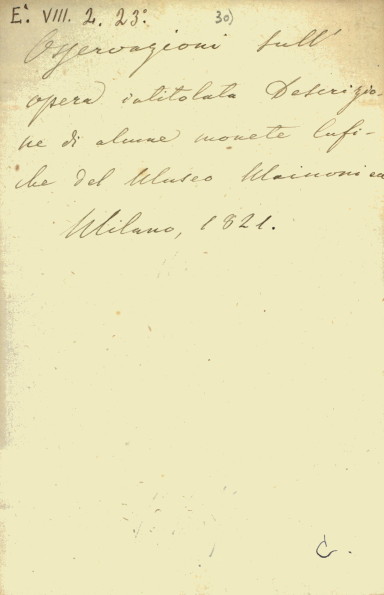 E. VIII. 2. 23. 30)
Osservazioni sull'
opera intitolata Descrizio-
ne di alcune monete Cufi-
che del Museo Mainoni ec
Milano, 1821.
C.